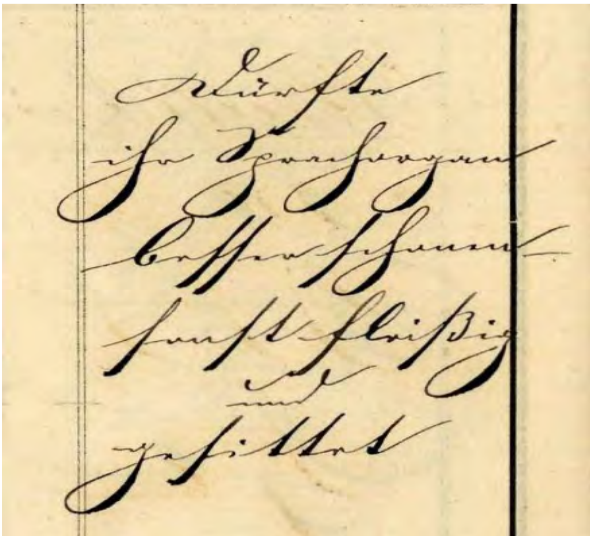 Dürfte
ihr Sprachorgan
besser schonen
sonst fleißig
und
gesittet